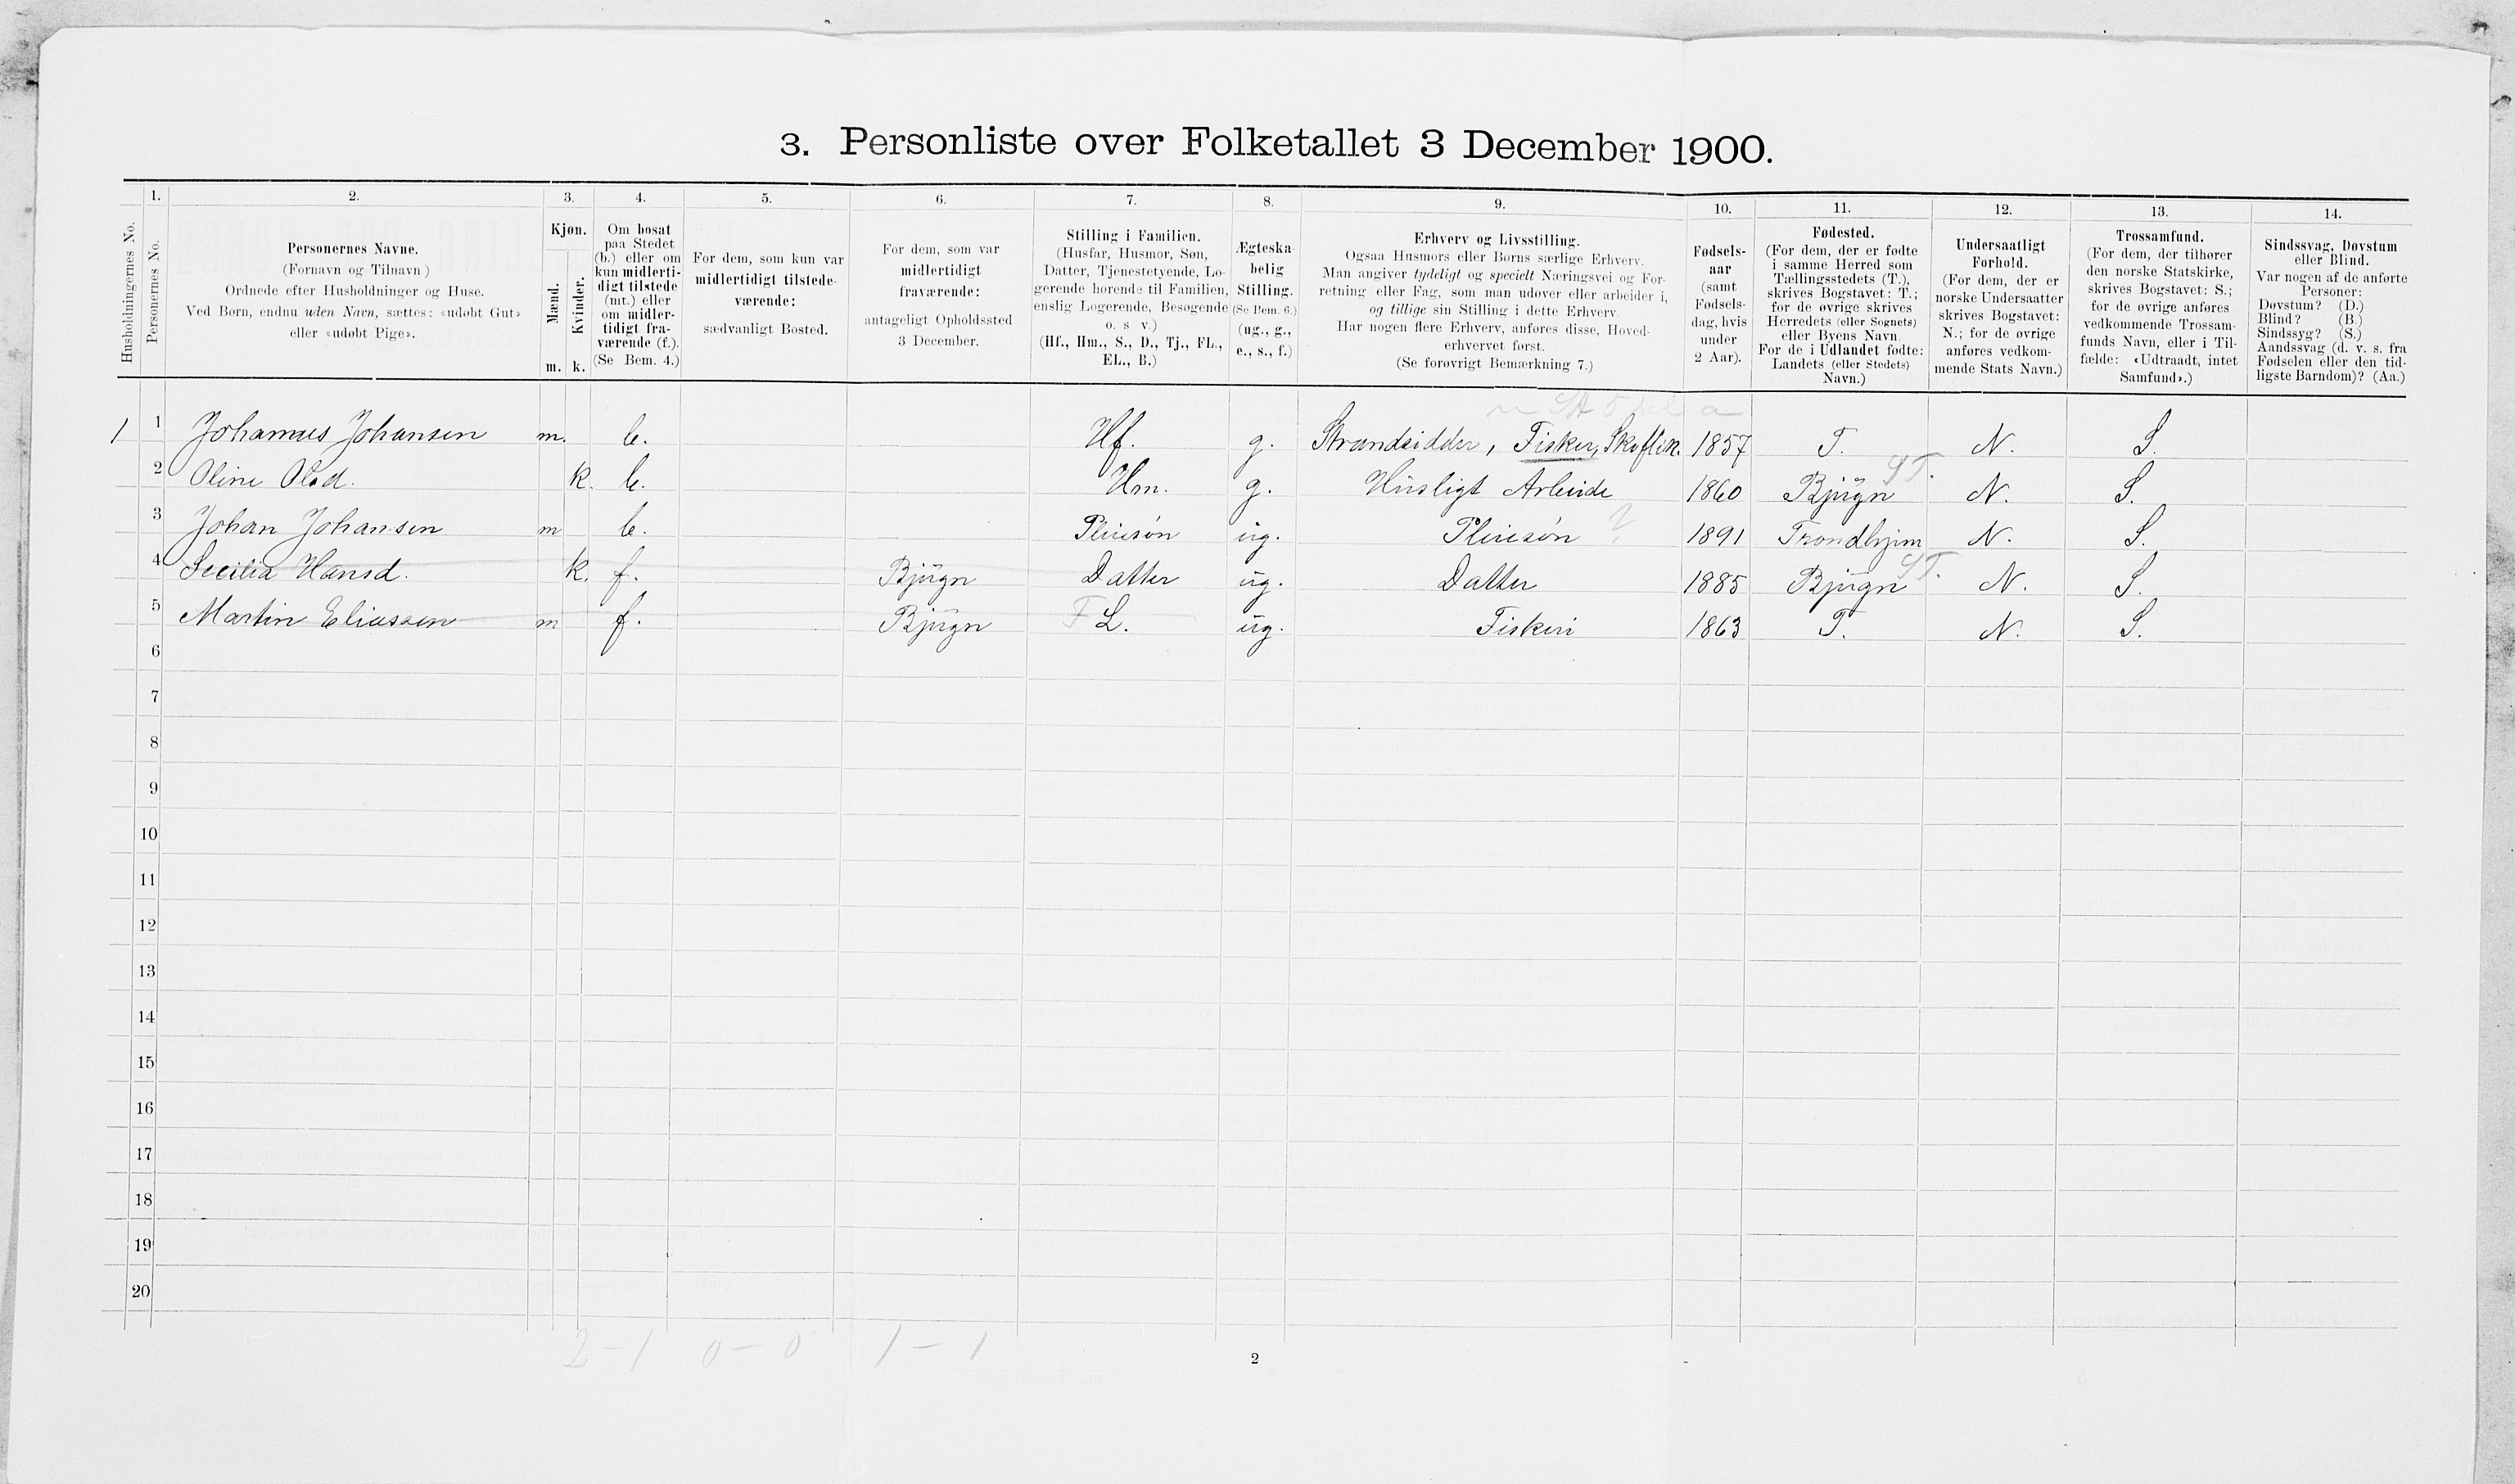 3. Personliste over Folketallet 3 December 1900.
1. 2. 3. 4. 5. 6. 7. 8. 9. 10. 11. 12. 13. 14.
Husholdningernes No.
Personernes No.
Personernes Navne.
(Fornavn og Tilnavn)
Ordnede efter Husholdninger og Huse.
Ved Børn, endnu uden Navn, sættes: «udøbt Gut»
eller «udøbt Pige».
Kjøn.
Mænd.
Kvinder.
m. k.
Om bosat
paa Stedet
(b.) eller om
kun midlerti-
digt tilstede
(mt.) eller
om midler-
tidigt fra-
værende (f.).
(Se Bem. 4.)
For dem, som kun var
midlertidigt tilstede-
værende:
sædvanligt Bosted.
For dem, som var
midlertidigt
fraværende:
antageligt Opholdssted
3 December.
Stilling i Familien.
(Husfar, Husmor, Søn,
Datter, Tjenestetyende, Lo-
gerende hørende til Familien,
enslig Logerende, Besøgende
o. s v.)
(Hf., Hm., S., D., Tj., FL.,
EL., B.)
Ægteska-
belig
Stilling.
(Se Bem. 6.)
(ug., g.,
e., s., f.)
Erhverv og Livsstilling.
Ogsaa Husmors eller Børns særlige Erhverv.
Man angiver tydeligt og specielt Næringsvei og For-
retning eller Fag, som man udøver eller arbeider i,
og tillige sin Stilling i dette Erhverv.
Har nogen flere Erhverv, anføres disse, Hoved-
erhvervet først.
(Se forøvrigt Bemærkning 7.)
Fødsels-
aar
(samt
Fødsels-
dag, hvis
under
2 Aar).
Fødested.
(For dem, der er fødte
i samme Herred som
Tællingsstedets (T.),
skrives Bogstavet: T.;
for de øvrige skrives
Herredets (eller Sognets)
eller Byens Navn.
For de i Udlandet fødte:
Landets (eller Stedets)
Navn.)
Undersaatligt
Forhold.
(For dem, der er
norske Undersaatter
skrives Bogstavet:
N.; for de øvrige
anføres vedkom-
mende Stats Navn.)
Trossamfund.
(For dem, der tilhører
den norske Statskirke,
skrives Bogstavet: S.;
for de øvrige anføres
vedkommende Trossam-
funds Navn, eller i Til-
fælde: «Udtraadt, intet
Samfund».)
Sindssvag, Døvstum
eller Blind.
Var nogen af de anførte
Personer:
Døvstum? (D.)
Blind? (B.)
Sindssyg? (S.)
Aandssvag (d. v. s. fra
Fødselen eller den tid-
ligste Barndom)? (Aa.)
1 1 Johannes Johansen m. b. Hf. g. Strandsidder, Fisker, 1857 T. N. S.
2 Oline Olsd. k. b. Hm. g. Husligt Arbeide 1860 Bjugn ST. N. S.
3 Johan Johansen m b. Pleiesøn ug. Pleiesøn 1891 Trondhjem N. S.
4 Secilia Hansd. k. f. Bjugn Datter ug. Datter 1885 Bjugn ST. N. S.
5 Martin Eliassen m f. Bjugn F L. ug. Fiskeri 1863 T. N. S.
6
7
8
9
10
11
12
13
14
15
16
17
18
19
20
2-1 0-0 1-1
2